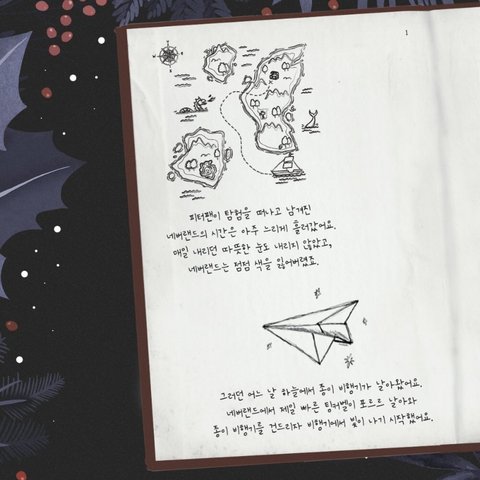 1
피터팬이 탐험을 떠나고 남겨진
네버랜드의 시간은 아주 느리게 흘러갔어요.
매일 내리던 따뜻한 눈도 내리지 않았고,
네버랜드는 점점 색을 잃어버렸죠.
그러던 어느 날 하늘에서 종이 비행기가 날아왔어요.
네버랜드에서 제일 빠른 팅커벨이 포르르 날아와
종이 비행기를 건드리자 비행기에서 빛이 나기 시작했어요.